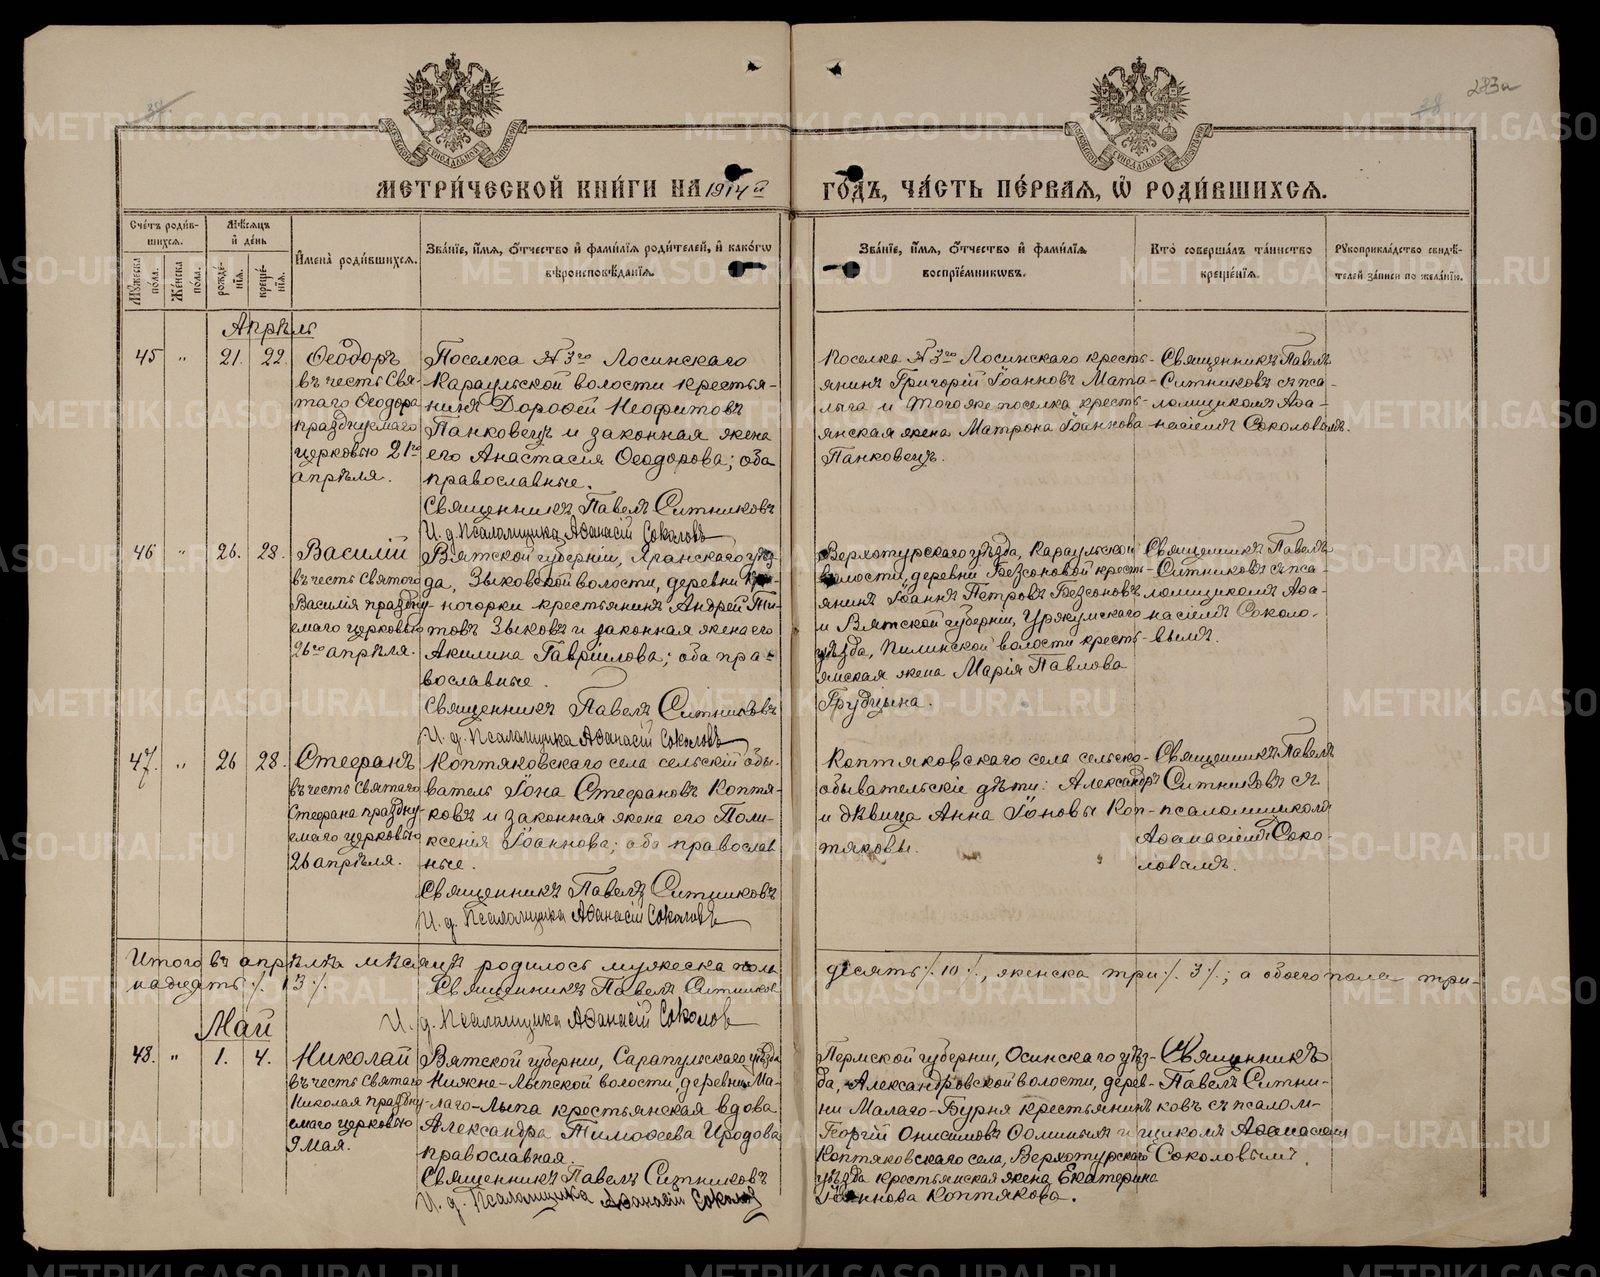 283а
МЕТРИ́ЧЕСКОЙ КНИ́ГИ НА 1914й ГО́ДЪ, ЧА́СТЬ ПЕ́РВАЯ, Ѡ РОДИ́ВШИХСЯ.
Сче́тъ роди́вшихся.
Мѣ́сяцъ и де́нь
Имена̀ роди́вшихся.
Зва́нїе, и́мя, о́тчество и фами́лїя роди́телей, и како́гѡ
вѣроисповѣ́данїя.
Зва́нїе, и́мя, о́тчество и фами́лїя
воспрїе́мниковъ.
Кто̀ соверша́лъ та́инство
креще́нїя.
Рукоприкла́дство свидѣ́-
телей за́писи по жела́нїю.
Мужеска по́ла.
Же́нска по́ла.
рожде́нїя.
креще́нїя.
Апрѣль
45 " 21. 22.
Ѳеодоръ
въ честь Свя-
таго Ѳеодора
празднуемаго
церковью 21го
апрѣля.
Поселка № 3го Лосинскаго
Караульской волости крестья-
нинъ Дороѳей Неофитовъ
Панковецъ и законная жена
его Анастасія Ѳеодорова; оба
православные.
Священникъ Павелъ Ситниковъ
И. д. Псаломщика Аѳанасій Соколовъ
Поселка № 3го Лосинскаго кресть-
янинъ Григорій Іоанновъ Мата-
лыга и того же поселка кресть-
янская жена Матрона Іоаннова
Панковецъ.
Священникъ Павелъ
Ситниковъ съ пса-
ломщикомъ Аѳа-
насіемъ Соколовымъ.
46 " 26. 28.
Василій
въ честь Святого
Василія праздну-
емаго церковью
26го апрѣля.
Вятской губерніи, Яранскаго уѣз-
да, Зыковской волости, деревни
ногорки крестьянинъ Андрей Ти-
товъ Зыковъ и законная жена его
Акилина Гавріилова; оба пра-
вославные.
Священникъ Павелъ Ситниковъ
И. д. Псаломщика Аѳанасій Соколовъ
Верхотурскаго уѣзда, Караульской
волости, деревни Безсоновой кресть-
янинъ Іоаннъ Петровъ Безсоновъ
и Вятской губерніи, Уржумскаго
уѣзда, Пилинской волости кресть-
янская жена Марія Павлова
Грудцына.
Священникъ Павелъ
Ситниковъ съ пса-
ломщикомъ Аѳа-
насіемъ Соколо-
вымъ.
47. " 26 28.
Стефанъ
въ честь Святаго
Стефана праздну-
емаго церковью
26 апрѣля.
Коптяковскаго села сельскій обы-
ватель Іона Стефановъ Коптя-
ковъ и законная жена его Поли-
ксенія Іоаннова; оба православ-
ные.
Священникъ Павелъ Ситниковъ
И. д. Псаломщика Аѳанасій Соколовъ
Коптяковскаго села сельско-
обывательскіе дѣти: Александръ
и дѣвица Анна Іоновы Коп-
тяковы.
Священникъ Павелъ
Ситниковъ съ
псаломщикомъ
Аѳанасіемъ Соко-
ловымъ.
Итого въ апрѣлѣ мѣсяцѣ родилось мужеска пола десять ./. 10 ./., женска три ./. 3 ./.; а обоего пола три-
надцать ./. 13 ./.
Священникъ Павелъ Ситниковъ
И. д. Псаломщика Аѳанасій Соколовъ
Май
48. " 1. 4.
Николай
въ честь Святаго
Николая праздну-
емаго церковью
9 Мая.
Вятской губерніи, Сарапульскаго уѣзда
Нижне-Лыпской волости, деревни Ма-
лаго-Лыпа крестьянская вдова
Александра Тимоѳеева Иродова
православная.
Священникъ Павелъ Ситниковъ
И. д. Псаломщика Аѳанасій Соколовъ
Пермской губерніи, Осинскаго уѣз-
да, Александровской волости, дерев-
ни Малаго-Бурня крестьянинъ
Георгій Онисимовъ Ѳоминыхъ и
Коптяковскаго села, Верхотурскаго
уѣзда крестьянская жена Екатерина
Іоаннова Коптякова.
Священникъ
Павелъ Ситни-
ковъ съ псалом-
щикомъ Аѳанасіемъ
Соколовымъ.
METRIKI.GASO-URAL.RU